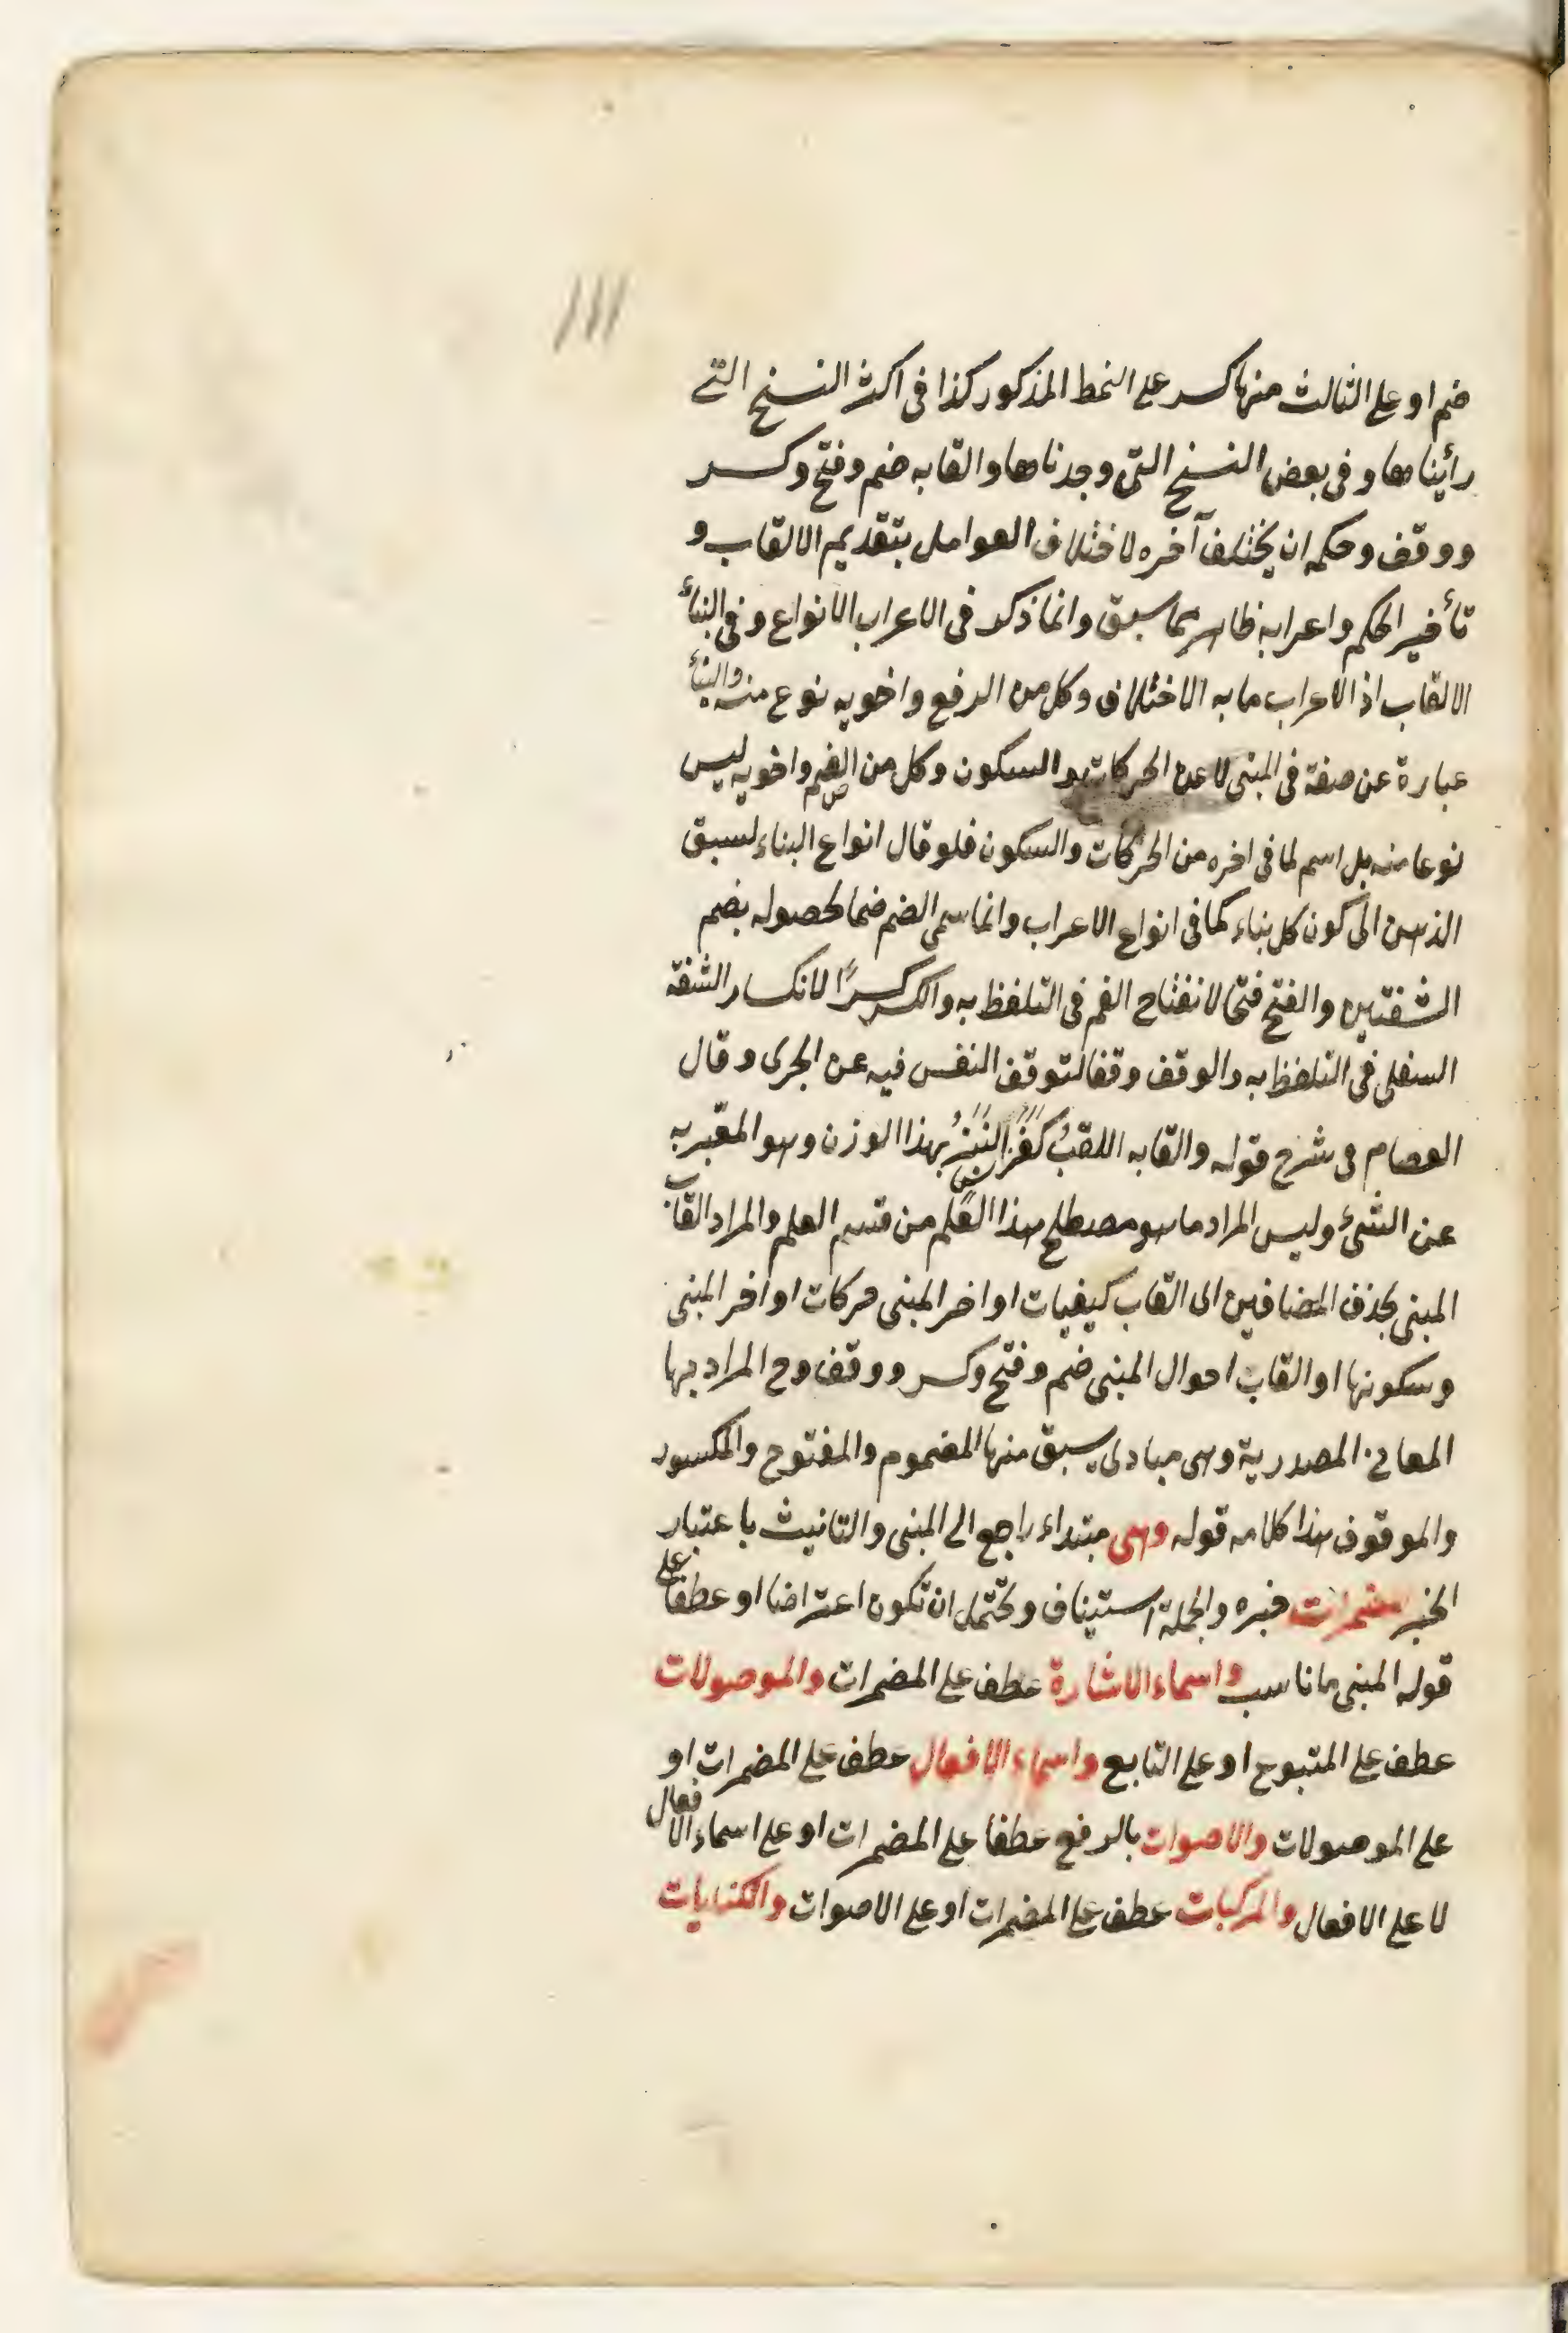 ضم او على الثالث منها كسر على النمط المذكور كذا فى اكثر النسخ التى
رأيناها و فى بعض النسخ التى وجدناها والقابه ضم وفتح وكسر
ووقف وحكمه ان يختلف آخره لاختلاف العوامل بتقديم الالقاب و
تأخير الحكم واعرابه ظاهر مما سبق وانما ذكر فى الاعراب الانواع وفى البناء
الالقاب اذ الاعراب ما به الاختلاف وكل من الرفع واخويه نوع منه والبناء
عبارة عن صفة فى المبنى لا عن الحركات والسكون وكل من الضم واخويه ليس
نوعا منه بل اسم لما فى اخره من الحركات والسكون فلو قال انواع البناء لسبق
الذهن الى كون كل بناء كما فى انواع الاعراب وانما سمى الضم ضما لحصوله بضم
الشفتين والفتح فتحا لانفتاح الفم فى التلفظ به والكسر كسرًا لانكسار الشفة
السفلى فى التلفظ به والوقف وقفا لتوقف النفس فيه عن الجرى وقال
العصام فى شرح قوله والقابه اللقب النبز بهذا الوزن وهو المعبر به
عن الشىء وليس المراد ما هو مصطلح هذا العلم من قسم العلم والمراد القاب
المبنى بحذف المضافين اى القاب كيفيات اواخر المبنى حركات اواخر المبنى
وسكونها او القاب احوال المبنى ضم وفتح وكسر ووقف وح المراد بها
المعانى المصدرية وهى مبادى سبق منها المضموم والمفتوح والمكسور
والموقوف هذا كلامه قوله وهى مبتداء راجع الى المبنى والتانيث باعتبار
الخبر مضمرات خبره والجملة استيناف ويحتمل ان تكون اعتراضا او عطفا على
قوله المبنى ما ناسب واسماء الاشارة عطف على المضمرات والموصولات
عطف على المتبوع او على التابع واسماء الافعال عطف على المضمرات او
على الموصولات والاصوات بالرفع عطفا على المضمرات او على اسماء الافعال
لا على الافعال والمركبات عطف على المضمرات او على الاصوات والكنايات